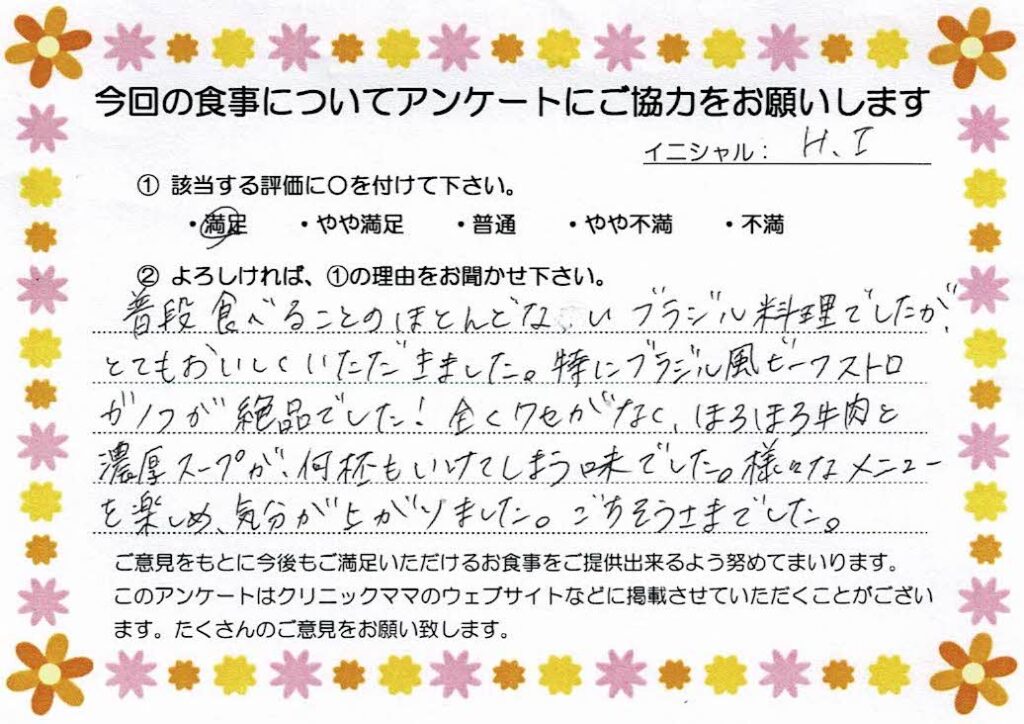 今回の食事についてアンケートにご協力をお願いします
イニシャル： H.I
① 該当する評価に〇を付けて下さい。
・満足 ・やや満足 ・普通 ・やや不満 ・不満
② よろしければ、①の理由をお聞かせ下さい。
普段食べることのほとんどないブラジル料理でしたが、
とてもおいしくいただきました。特にブラジル風ビーフストロ
ガノフが絶品でした！全くクセがなく、ほろほろ牛肉と
濃厚スープが、何杯もいけてしまう味でした。様々なメニュー
を楽しめ、気分が上がりました。ごちそうさまでした。
ご意見をもとに今後もご満足いただけるお食事をご提供出来るよう努めてまいります。
このアンケートはクリニックママのウェブサイトなどに掲載させていただくことがござい
ます。たくさんのご意見をお願い致します。